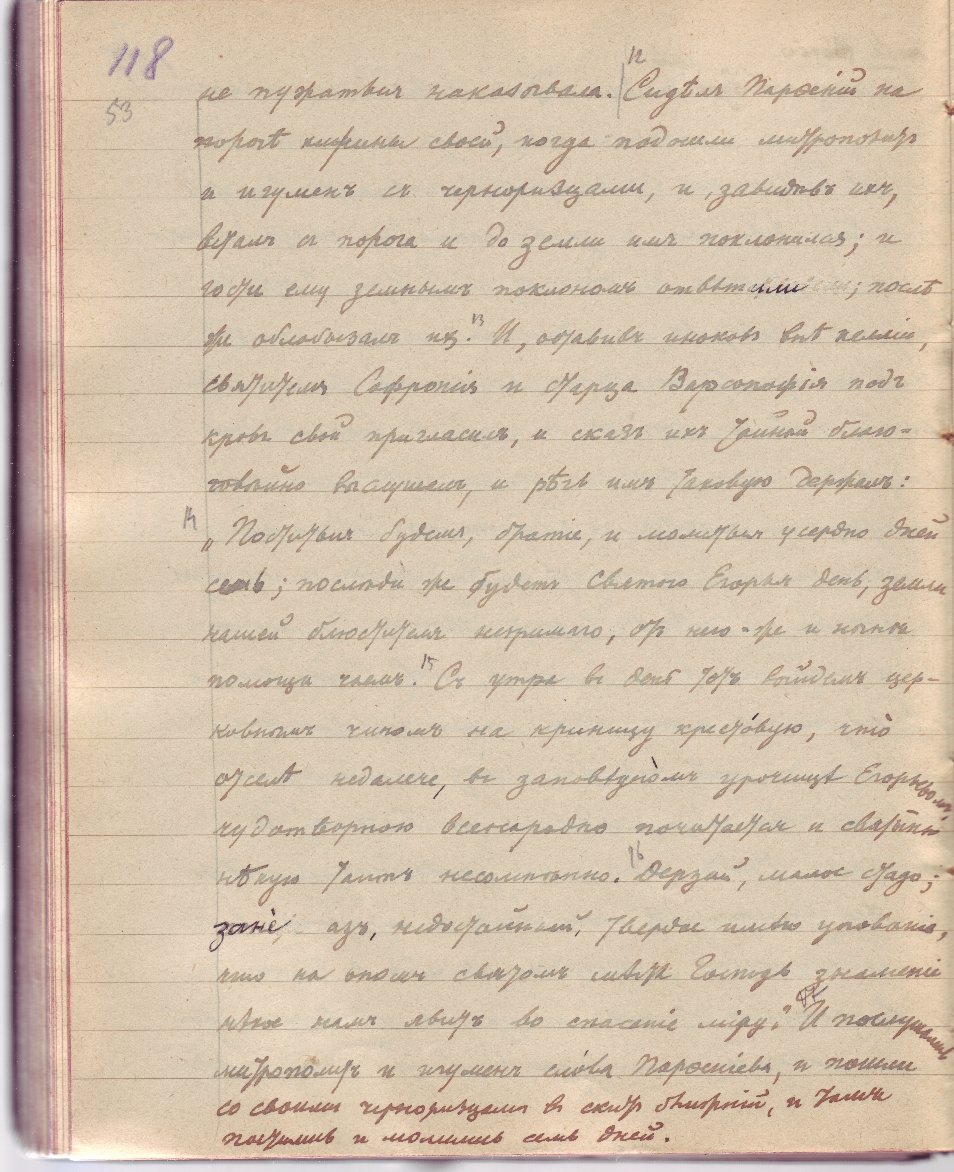 118
53
не пужатьсч наказывала. 12 Сидѣлъ Парѳеній на
порогѣ хижины своей, когда подошли митрополитъ
и игуменъ съ черноризцами, и, завидѣвъ ихъ,
всталъ съ порога и до земли имъ поклонился; и
гости ему земнымъ поклономъ отвѣтили; послѣ
же облобызалъ ихъ. 13 И, оставивъ иноковъ внѣ келліи,
святителя Софронія и старца Варсонофія подъ
кровъ свой пригласилъ, и сказъ ихъ тайный благо-
говѣйно выслушалъ, и рѣчь имъ таковую держалъ:
14 „Поститься будемъ, братіе, и молиться усердно дней
семь; послѣди же будетъ святого Егорья день, земли
нашей блюстителя незримаго, отъ него-же и нынѣ
помощи чаемъ. 15 Съ утра въ день тотъ выйдемъ цер-
ковнымъ чиномъ на криницу крестовую, что
отселѣ недалече, въ заповѣдномъ урочищѣ Егорьевомъ,
чудотворною всенародно почитается и святыню
нѣкую таитъ несомнѣнно. 16 Дерзай, малое стадо;
зане азъ, недостойный, твердое имѣю упованіе,
что на ономъ святомъ мѣстѣ Господь знаменіе
нѣкое намъ явитъ во спасеніе міру." 17 И послушались
митрополитъ и игуменъ слова Парѳеніева, и пошли
со своими черноризцами въ скитъ ближній, и тамъ
постились и молились семь дней.